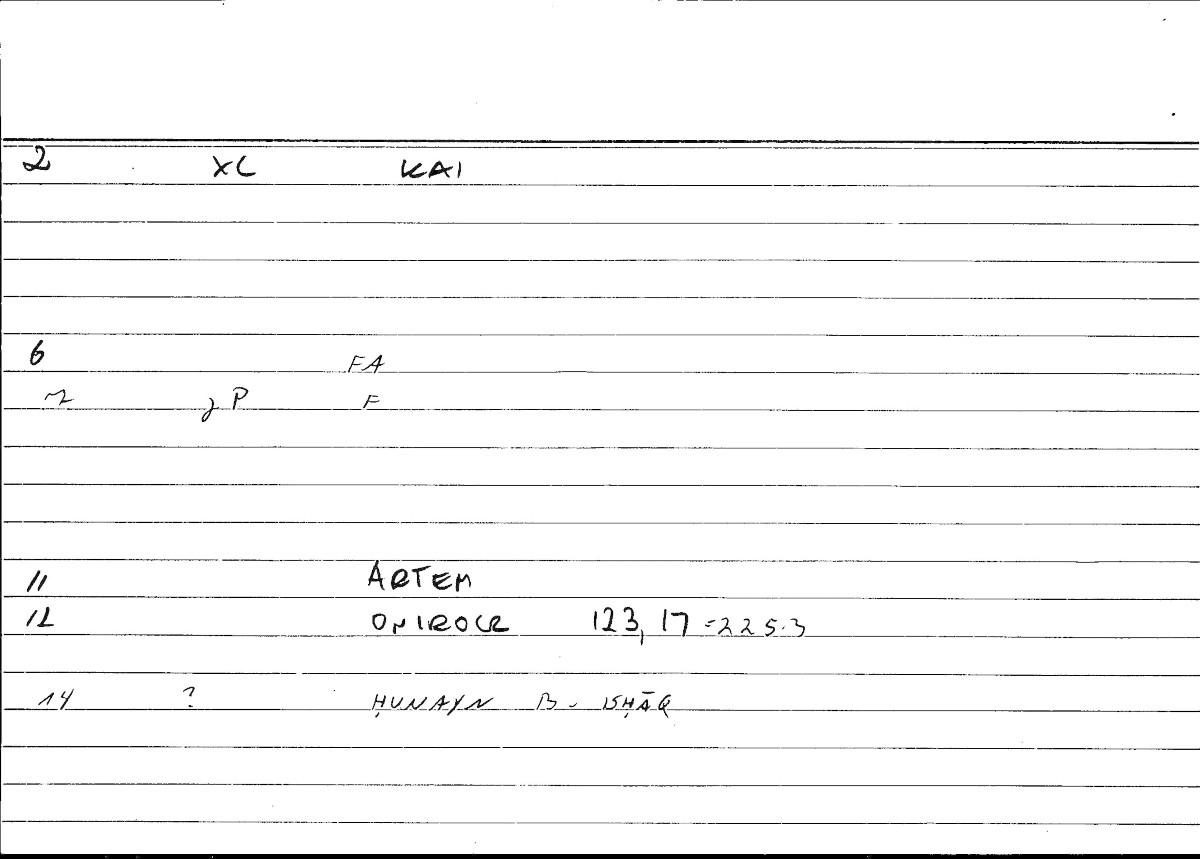 2 XL KAI
6 FA
7 γP F
11 ARTEM
12 ONIROCR 123, 17 = 225.3
14 ? ḤUNAYN B. ISḤĀQ